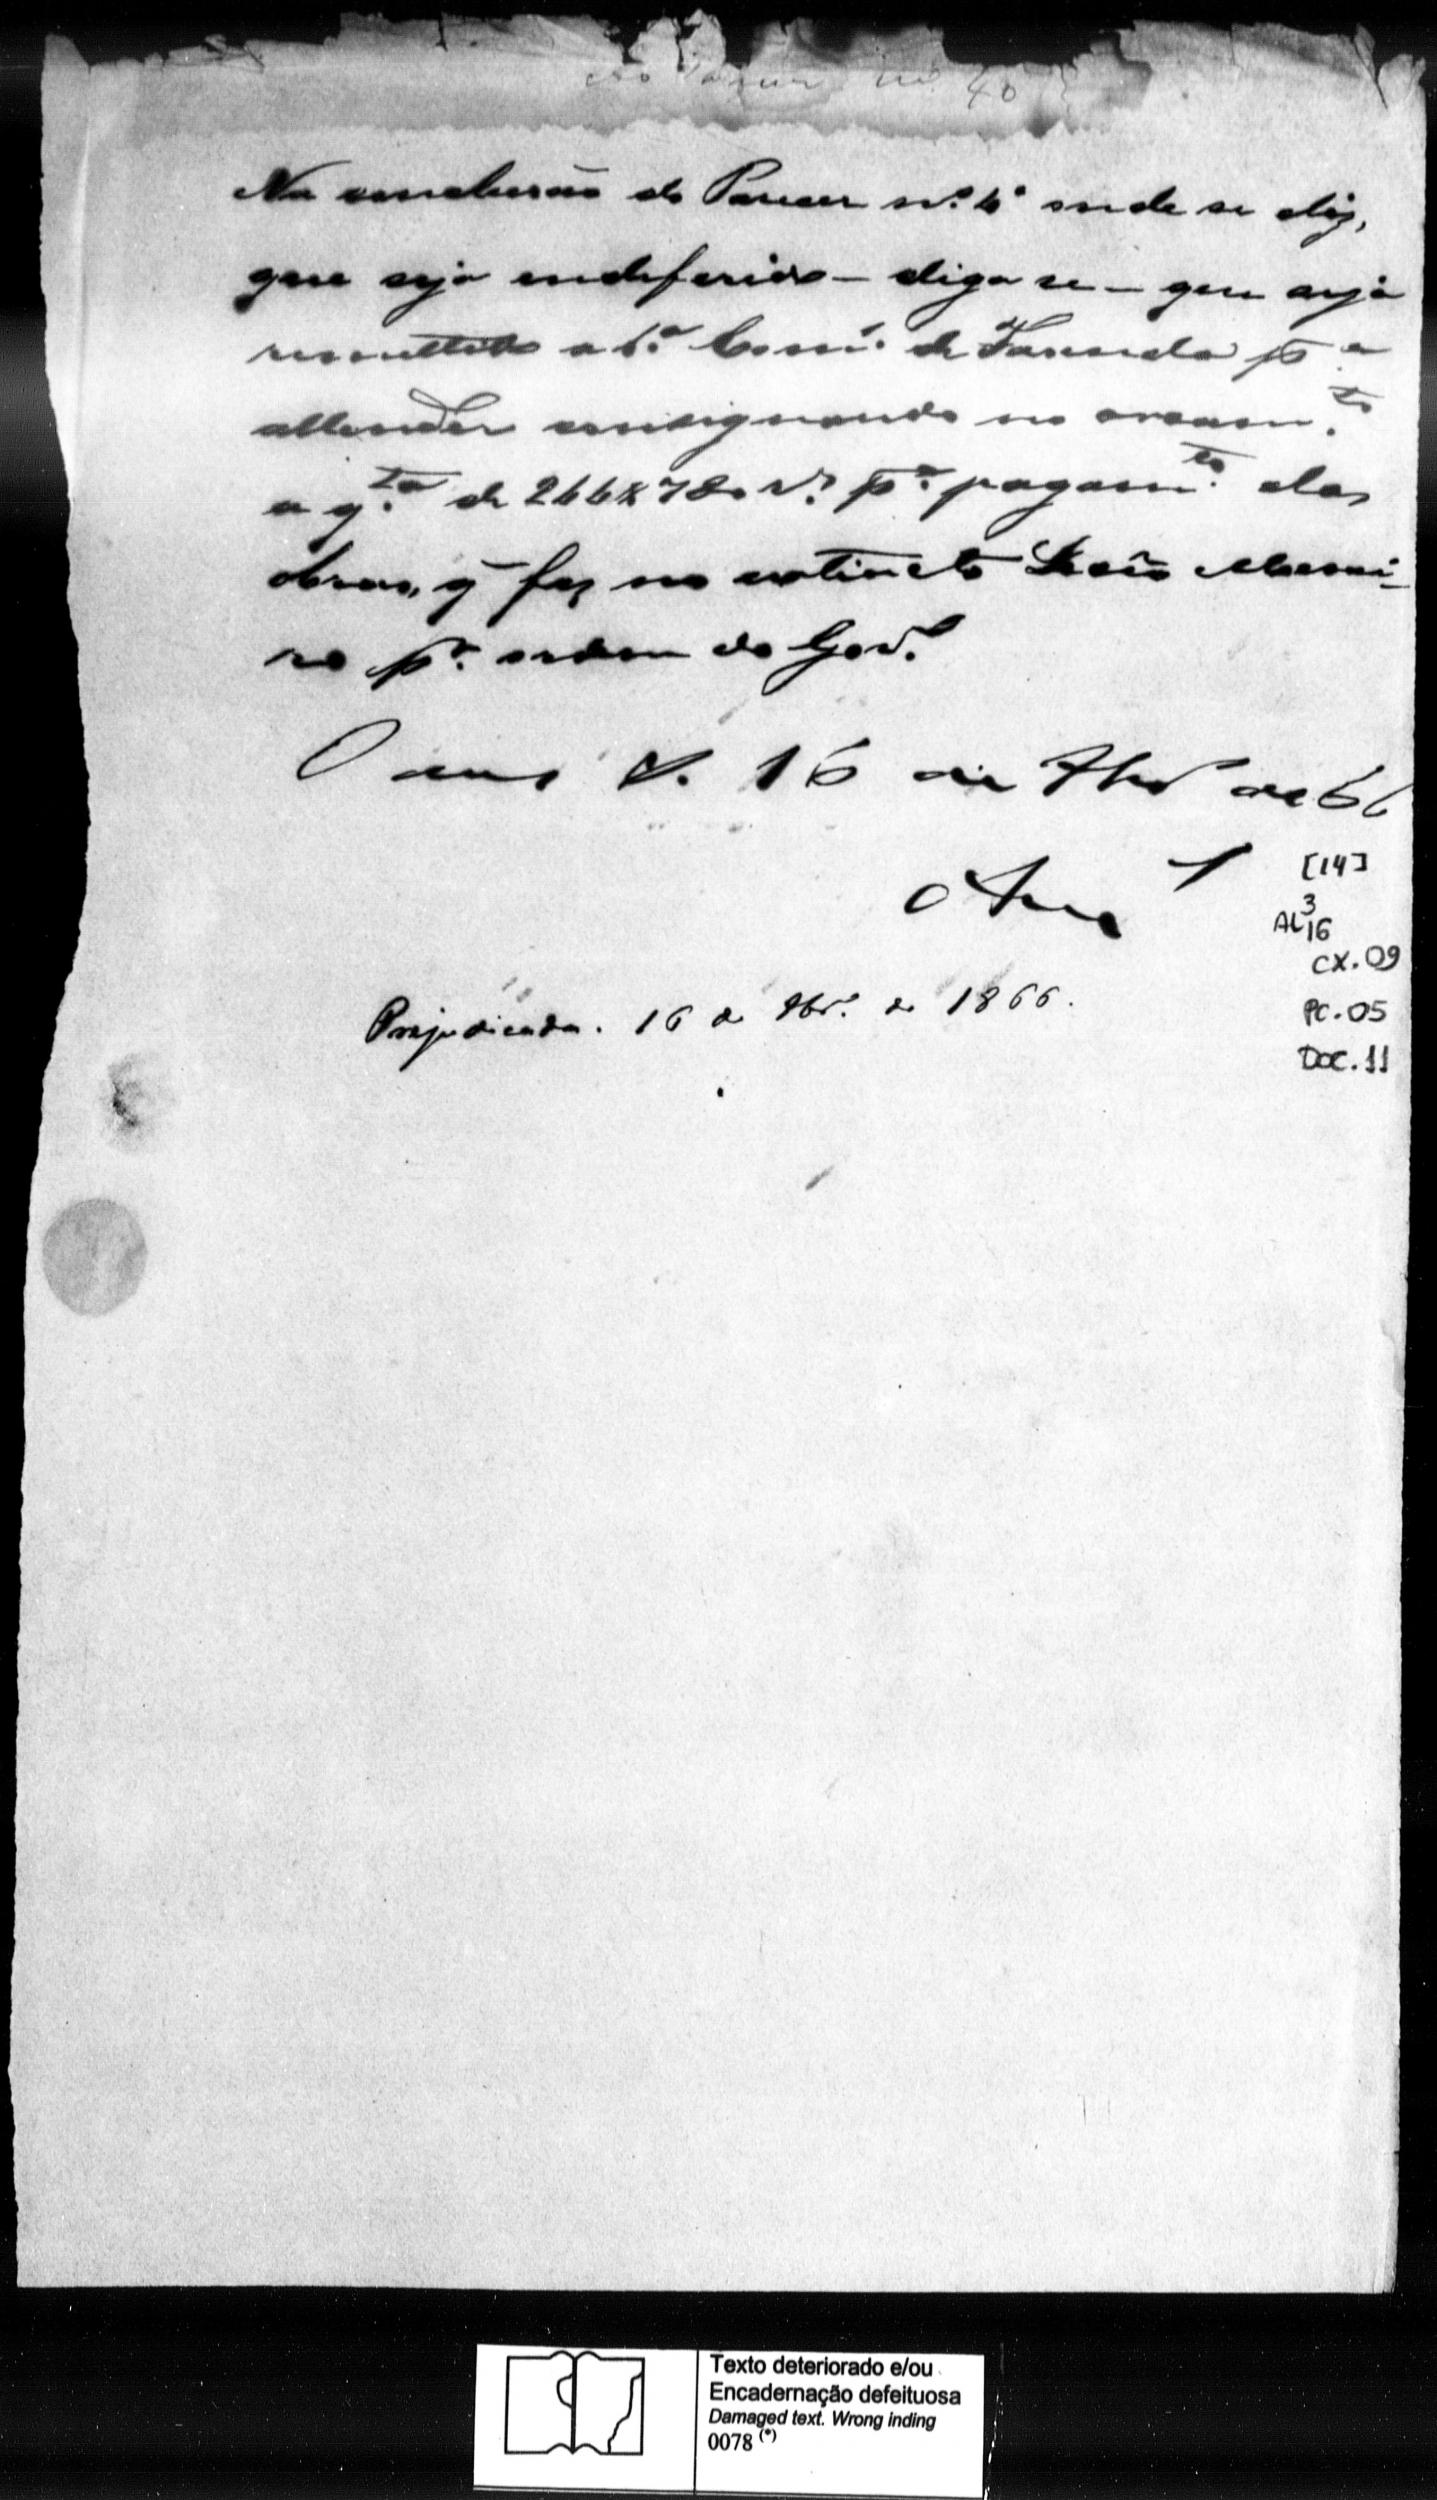 Parecer no. 40
Na conclusão do Parecer nº. 40 onde se diz,
que seja endeferido — diga se — que seja
remettido a 1.ª Com.m de Fazenda pª
attender consignando no orçam.to
a q.ta de 266$780 r.s pª. pagam.to das
obras, q̃ fez no extincto
pr. ordem do Gov.o
S. 16 de 7bro de 66
Prejudicada. 16 de 7br.o de 1866.
[14]
AL
3
16
CX. 09
PC. 05
DOC. 11
Texto deteriorado e/ou
Encadernação defeituosa
Damaged text. Wrong inding
0078 (*)